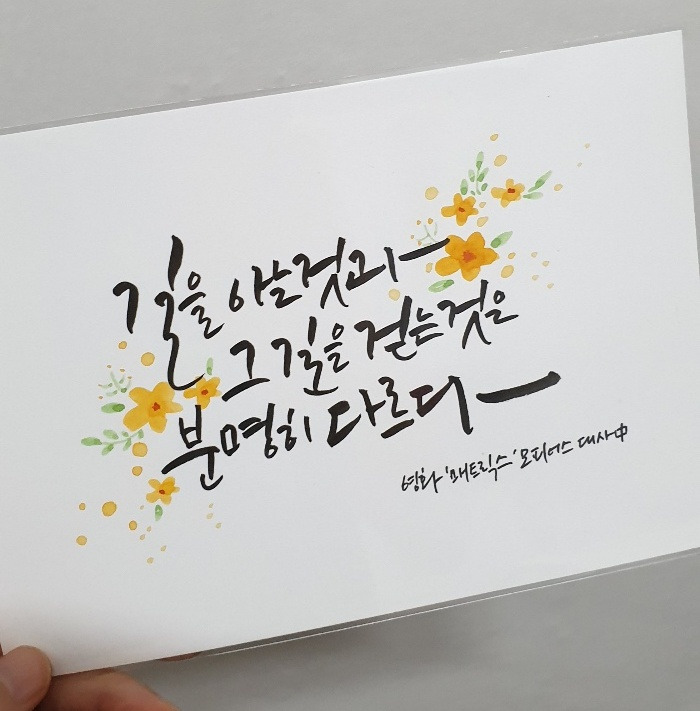 길을 아는것과
그 길을 걷는것은
분명히 다르다
영화 '매트릭스' 모피어스 대사中